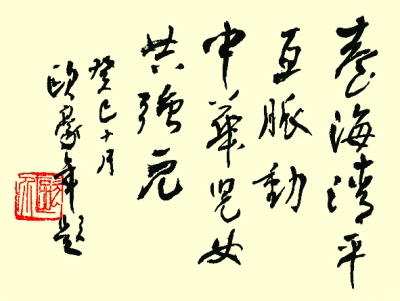 臺海清平
互脈動
中華兒女
共強
癸巳十月
歐豪年題